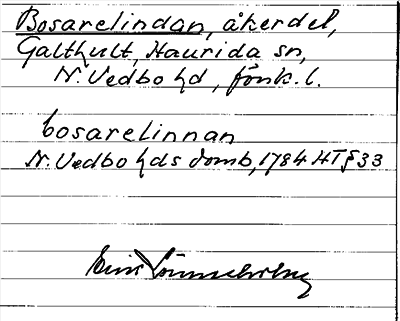 Bosarelindan, åkerdel,
Galthult, Haurida sn,
N. Vedbo hd, Jönk. l.
bosarelinnan
N. Vedbo hds domb, 1784 HT § 33